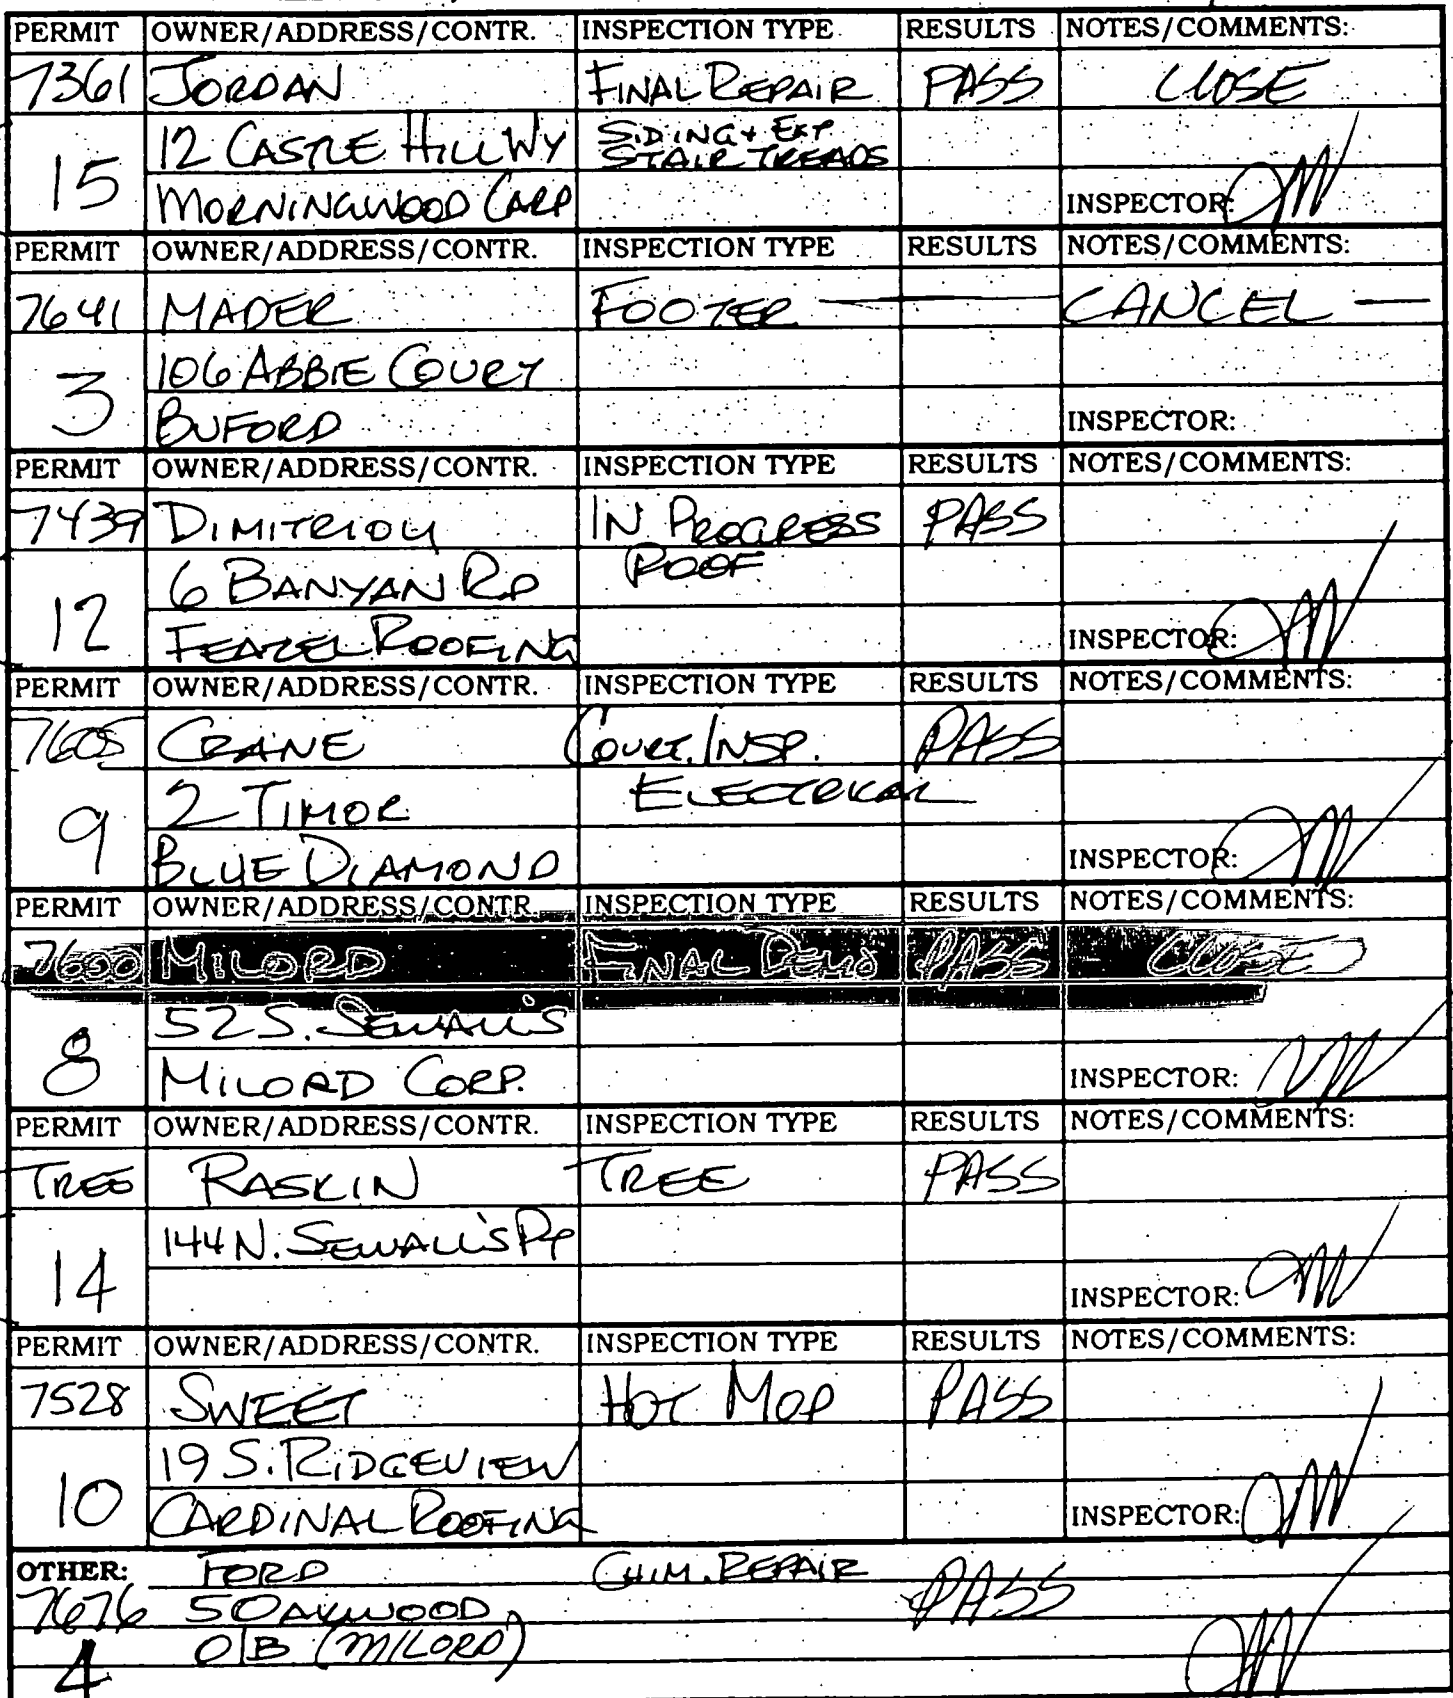 PERMIT OWNER/ADDRESS/CONTR. INSPECTION TYPE RESULTS NOTES/COMMENTS:
7361 JORDAN FINAL REPAIR PASS CLOSE
12 CASTLE HILL WY SIDING + EXT
STAIR TREADS
15 MORNINGWOOD CARP INSPECTOR:
PERMIT OWNER/ADDRESS/CONTR. INSPECTION TYPE RESULTS NOTES/COMMENTS:
7641 MADER FOOTER — CANCEL —
106 ABBIE COURT
3 BUFORD INSPECTOR:
PERMIT OWNER/ADDRESS/CONTR. INSPECTION TYPE RESULTS NOTES/COMMENTS:
7439 DIMITRIOU IN PROGRESS PASS
6 BANYAN RD ROOF
12 FEAZEL ROOFING INSPECTOR:
PERMIT OWNER/ADDRESS/CONTR. INSPECTION TYPE RESULTS NOTES/COMMENTS:
7605 CRANE COURT. INSP. PASS
2 TIMOR ELECTRICAL
9 BLUE DIAMOND INSPECTOR:
PERMIT OWNER/ADDRESS/CONTR. INSPECTION TYPE RESULTS NOTES/COMMENTS:
7600 MILORD FINAL DEMO PASS CLOSE
52 S. SEWALL'S
8 MILORD CORP. INSPECTOR:
PERMIT OWNER/ADDRESS/CONTR. INSPECTION TYPE RESULTS NOTES/COMMENTS:
TREE RASKIN TREE PASS
144 N. SEWALL'S PT
14 INSPECTOR:
PERMIT OWNER/ADDRESS/CONTR. INSPECTION TYPE RESULTS NOTES/COMMENTS:
7528 SWEET HOT MOP PASS
19 S. RIDGEVIEW
10 CARDINAL ROOFING INSPECTOR:
OTHER: FORD CHIM. REPAIR PASS
7676 5 OAKWOOD
4 O/B (MILORD)